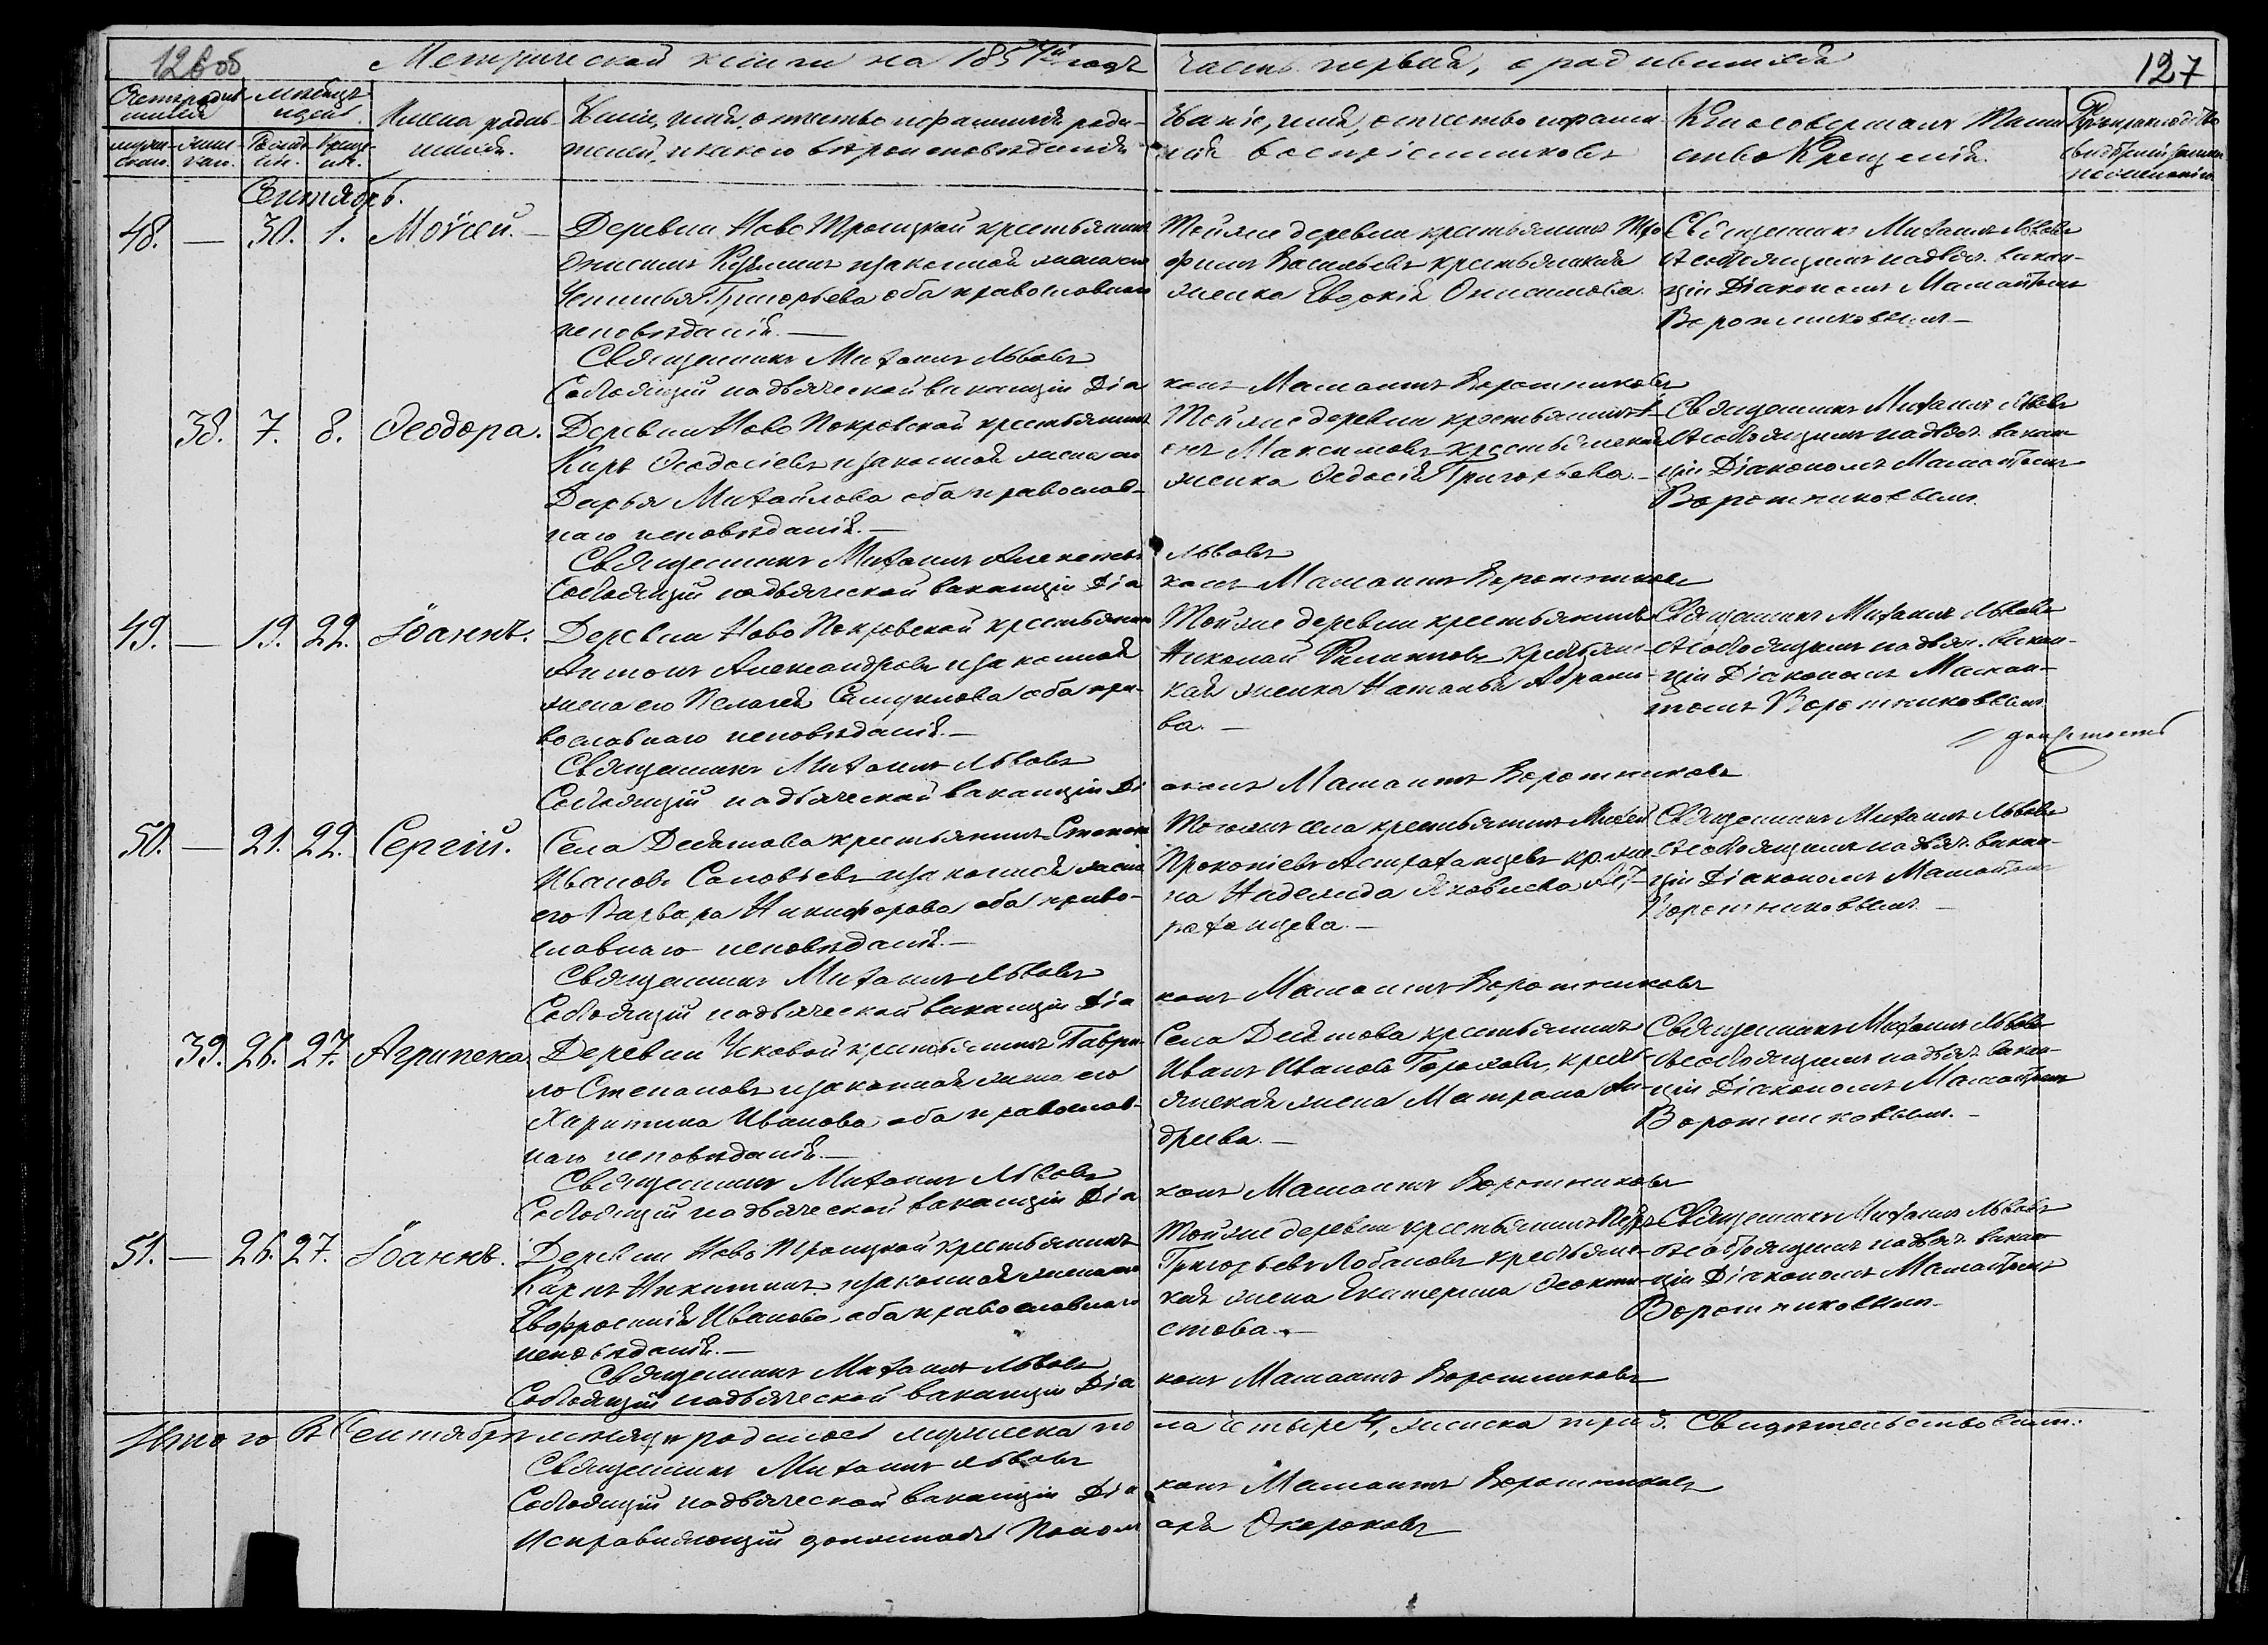 126об
Метрической книги на 1854й годъ
часть первая, о родившихся
127
Счетъ родив-
шихся
Мѣсяцъ
и день.
Имена родив-
шихся.
Званіе, имя, отчество и фамилія роди-
телей, и какого вѣроисповѣданія
Званіе, имя, отчество и фами-
лія воспріемниковъ
Кто совершалъ Таин-
ство Крещенія.
Рукоприкладство
свидѣтелей записи
по желанію
муже-
скаго.
жен-
скаго.
Рожде-
нія.
Креще-
нія.
Сентябрь.
48. — 30. 1. Моѵсей. —
Деревни Ново Троицкой крестьянинъ
Онисимъ Кузминъ и законная жена его
Григорьева оба православнаго
исповѣданія. —
Тойже деревни крестьянинъ Тро-
фимъ Васильевъ крестьянская
женка Евдокія Онисимова.
Священникъ Михаилъ Львовъ
съ состоящимъ на дьяч. вакан-
ціи Діакономъ Мамонтомъ
Воротниковымъ —
Священникъ Михаилъ Львовъ
Состоящій на дьяческой ваканціи Діа
конъ Мамонтъ Воротниковъ
38. 7. 8. Ѳеодора.
Деревни Ново Покровской крестьянинъ
Киръ Ѳеодосіевъ и законная жена его
Дарья Михайлова оба православ-
наго исповѣданія. —
Тойже деревни крестьянинъ
Максимовъ крестьянская
женка Ѳедосія Григорьева. —
Священникъ Михаилъ Львовъ
съ состоящимъ на дьяч. вакан-
ціи Діакономъ Мамонтомъ
Воротниковымъ.
Священникъ Михаилъ Алексѣевъ Львовъ
Состоящій на дьяческой ваканціи Діа
конъ Мамонтъ Воротниковъ
49. — 19. 22. Іоаннъ.
Деревни Ново Покровской крестьянинъ
Антонъ Александровъ и законная
жена его Пелагея Самуилова оба пра-
вославнаго исповѣданія. —
Тойже деревни крестьянинъ
Николай Филиповъ крестьянс-
кая женка Наталья Абрамо-
ва. —
Священникъ Михаилъ Львовъ
съ состоящимъ на дьяч. вакан-
ціи Діакономъ Мамон-
томъ Воротниковымъ
Священникъ Михаилъ Львовъ
Состоящій на дьяческой ваканціи Ді
аконъ Мамонтъ Воротниковъ
50. — 21. 22. Сергій.
Села Десятова крестьянинъ Степанъ
Ивановъ Соловьевъ и законная жена
его Варвара Никифорова оба право-
славнаго исповѣданія. —
Тогожъ села крестьянинъ
Прокопіевъ Астраханцевъ кр. же-
на Надежда Яковлева Аст-
раханцева. —
Священникъ Михаилъ Львовъ
съ состоящимъ на дьяч. вакан-
ціи Діакономъ Мамонтомъ
Воротниковымъ. —
Священникъ Михаилъ Львовъ
Состоящій на дьяческой ваканціи Діа
конъ Мамонтъ Воротниковъ
39. 26. 27. Агрипена
Деревни Усковой крестьянинъ Гаври-
ло Степановъ и законная жена его
Харитина Иванова оба православ-
наго исповѣданія. —
Села Десятова крестьянинъ
Иванъ Ивановъ Гороховъ, кресть-
янская жена Матрона Ан-
дреева. —
Священникъ Михаилъ Львовъ
съ состоящимъ на дьяч. вакан-
ціи Діакономъ Мамонтомъ
Воротниковымъ. —
Священникъ Михаилъ Львовъ
Состоящій на дьяческой ваканціи Діа
конъ Мамонтъ Воротниковъ
51. — 26. 27. Іоаннъ.
Деревни Ново Троицкой крестьянинъ
Карпъ Никитинъ и законная жена его
Евфросинія Иванова оба православнаго
исповѣданія. —
Тойже деревни крестьянинъ Петръ
Григорьевъ Лобановъ крестьянс-
кая жена Екатерина Ѳеокти-
стова. —
Священникъ Михаилъ Львовъ
съ состоящимъ на дьяч. вакан-
ціи Діакономъ Мамонтомъ
Воротниковымъ
Священникъ Михаилъ Львовъ
Состоящій на дьяческой ваканціи Діа
конъ Мамонтъ Воротниковъ
Итого въ Сентябрѣ мѣсяцѣ родилось мужеска по
ла четыре 4, женска три 3. Свидѣтельствовали:
Священникъ Михаилъ Львовъ
Состоящій на дьяческой ваканціи Діа
конъ Мамонтъ Воротниковъ
Исправляющій должность Поном
аря Окороковъ